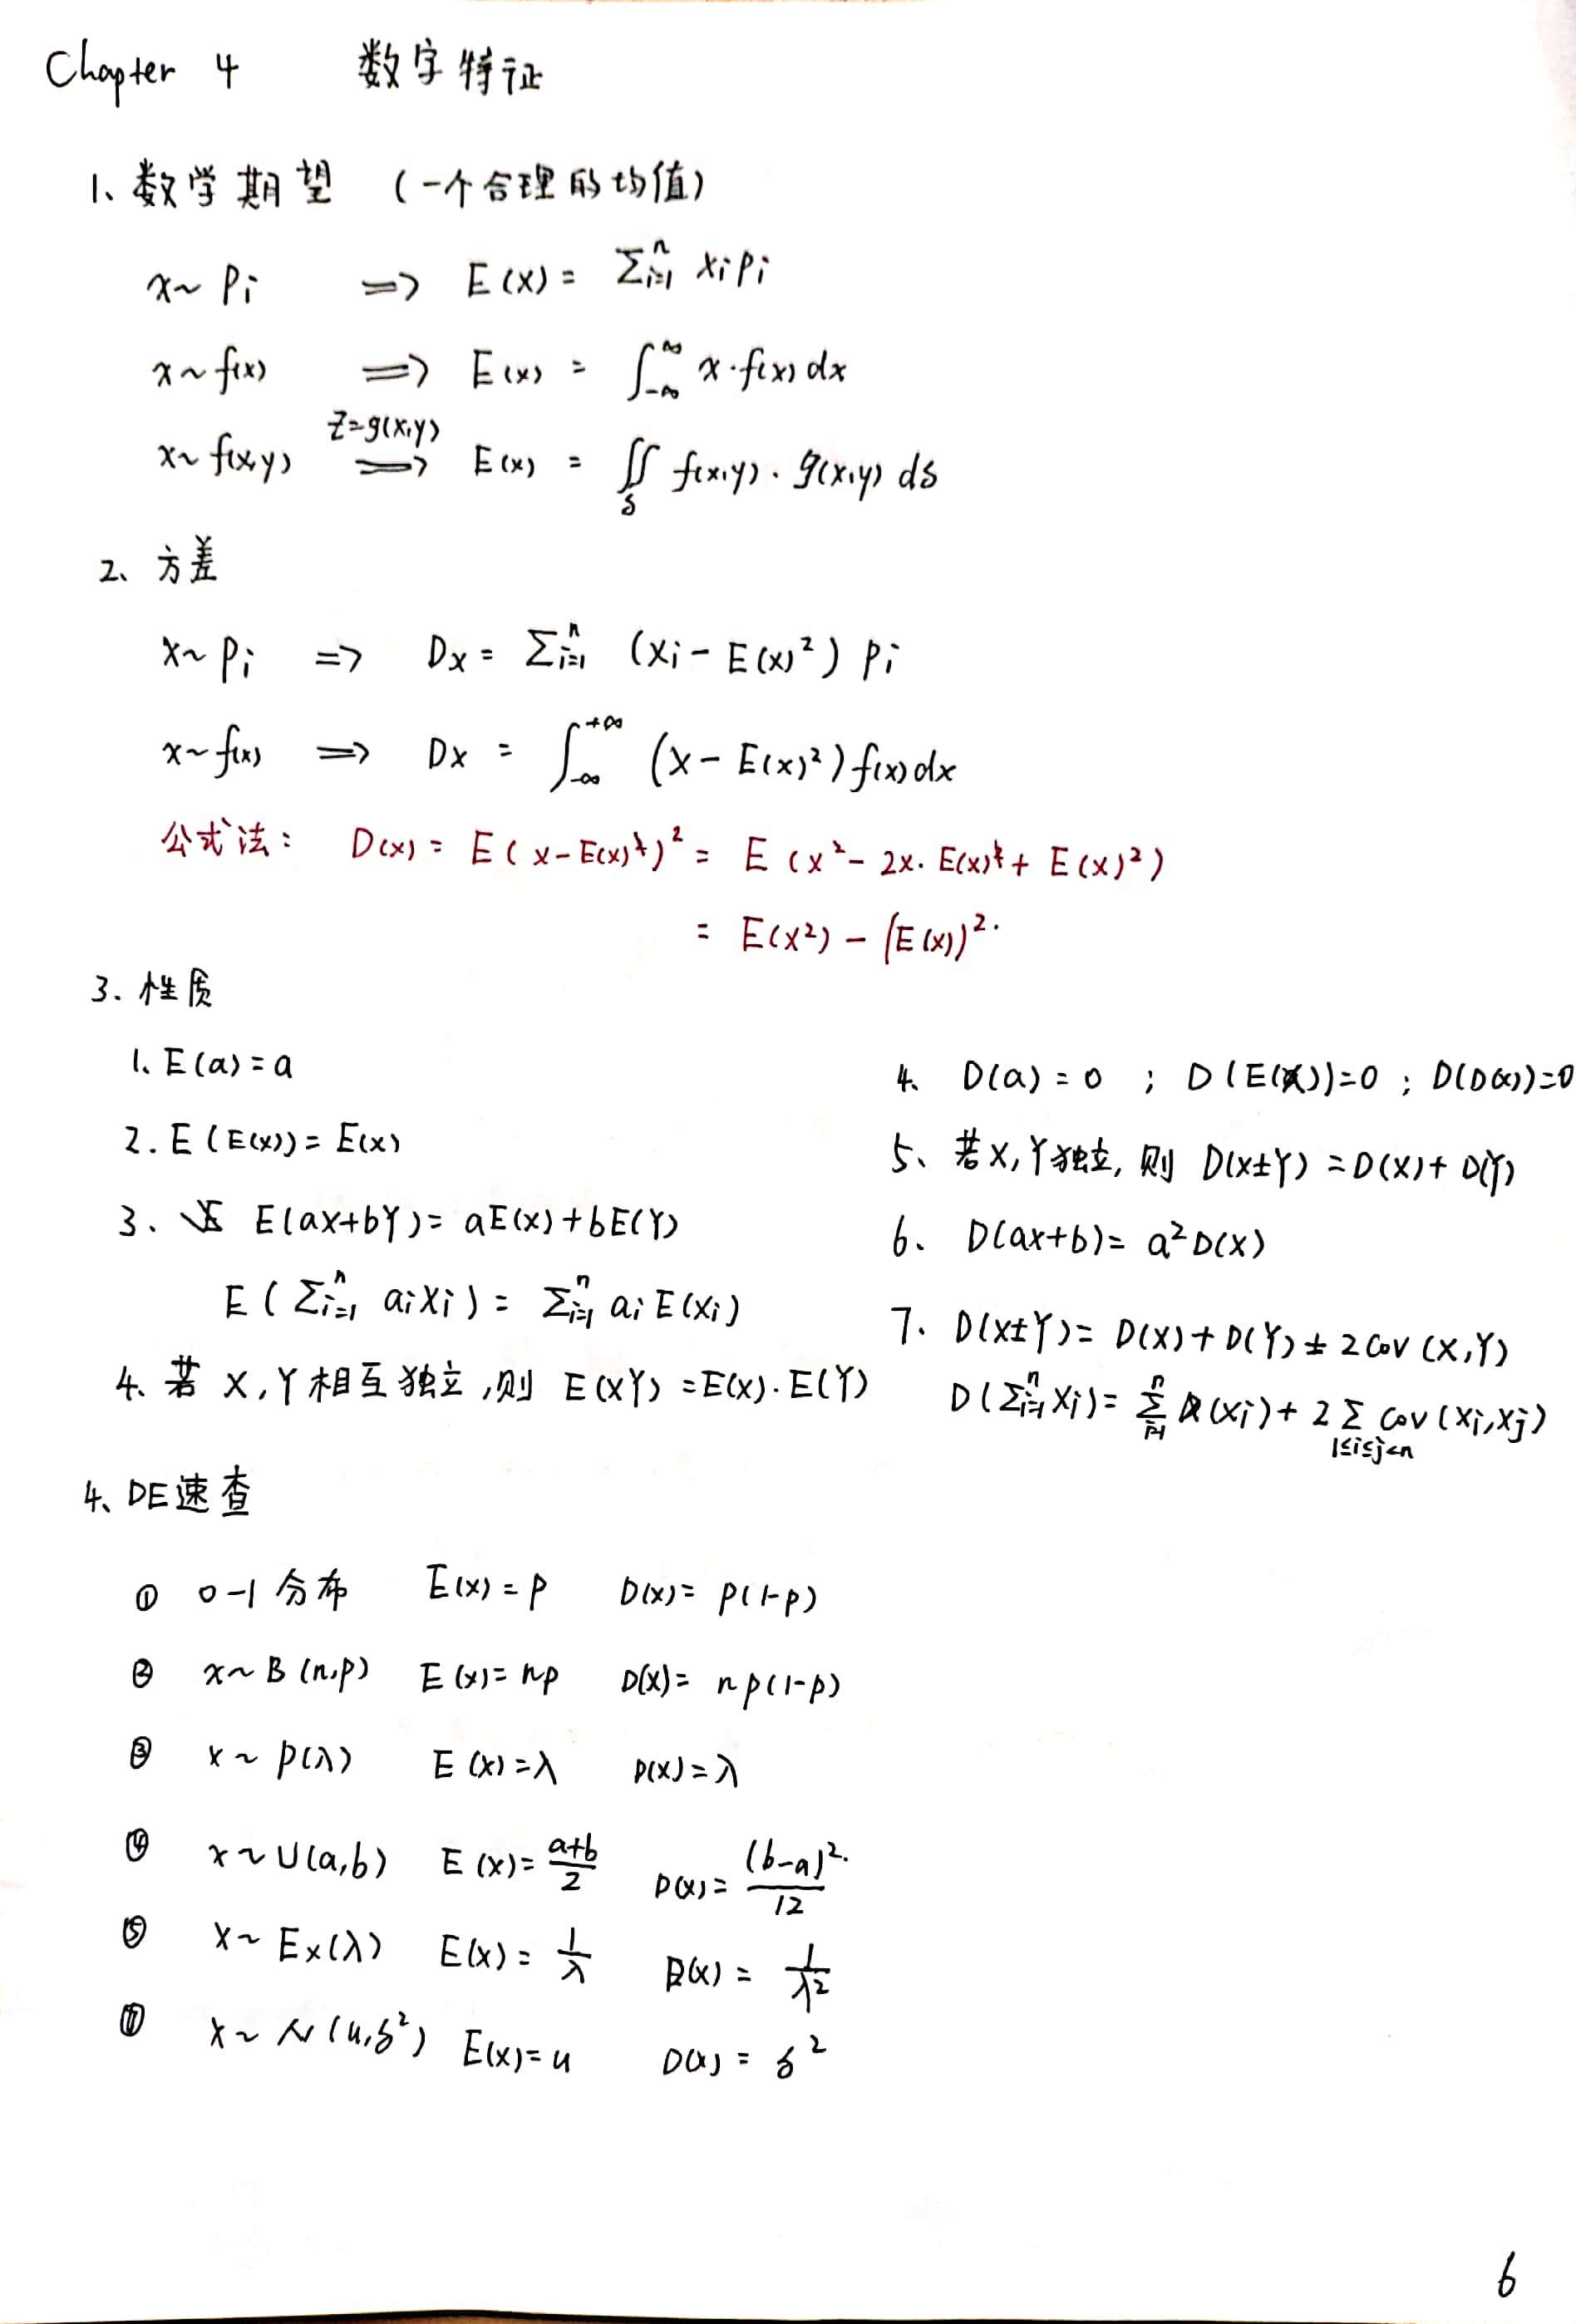 Chapter 4 数字特征
1、数学期望 (一个合理的均值)
x~Pi ⇒ E(x) = Σⁿᵢ₌₁ xipi
x~f(x) ⇒ E(x) = ∫_{-∞}^{∞} x·f(x)dx
x~f(x,y) ⇒ (z=g(x,y)) E(x) = ∬_S f(x,y)·g(x,y) ds
2、方差
x~Pi ⇒ Dx = Σⁿᵢ₌₁ (xi - E(x)²) pi
x~f(x) ⇒ Dx = ∫_{-∞}^{+∞} (x - E(x)²)f(x)dx
公式法: D(x) = E(x-E(x))² = E(x² - 2x·E(x) + E(x)²)
= E(x²) - (E(x))².
3.性质
1、E(a)=a
2.E(E(x))=E(x)
3、E(ax+bY)=aE(x)+bE(Y)
E(Σⁿᵢ₌₁ aixi) = Σⁿᵢ₌₁ aiE(xi)
4、若X,Y相互独立,则 E(XY)=E(x)·E(Y)
4、D(a)=0 ; D(E(X))=0 ; D(D(x))=0
5、若X,Y独立,则 D(x±Y)=D(X)+D(Y)
6、D(ax+b)=a²D(X)
7、D(x±Y)=D(X)+D(Y)±2Cov(X,Y)
D(Σⁿᵢ₌₁xi)=Σⁿᵢ₌₁D(xi)+2Σ_{1≤i≤j<n}Cov(xi,xj)
4、DE速查
① 0-1分布 E(x)=p D(x)=p(1-p)
② x~B(n,p) E(x)=np D(x)=np(1-p)
③ x~p(λ) E(x)=λ D(x)=λ
④ x~U(a,b) E(x)=(a+b)/2 D(x)=(b-a)²/12
⑤ x~Ex(λ) E(x)=1/λ D(x)=1/λ²
x~N(u,δ²) E(x)=u D(x)=δ²
6